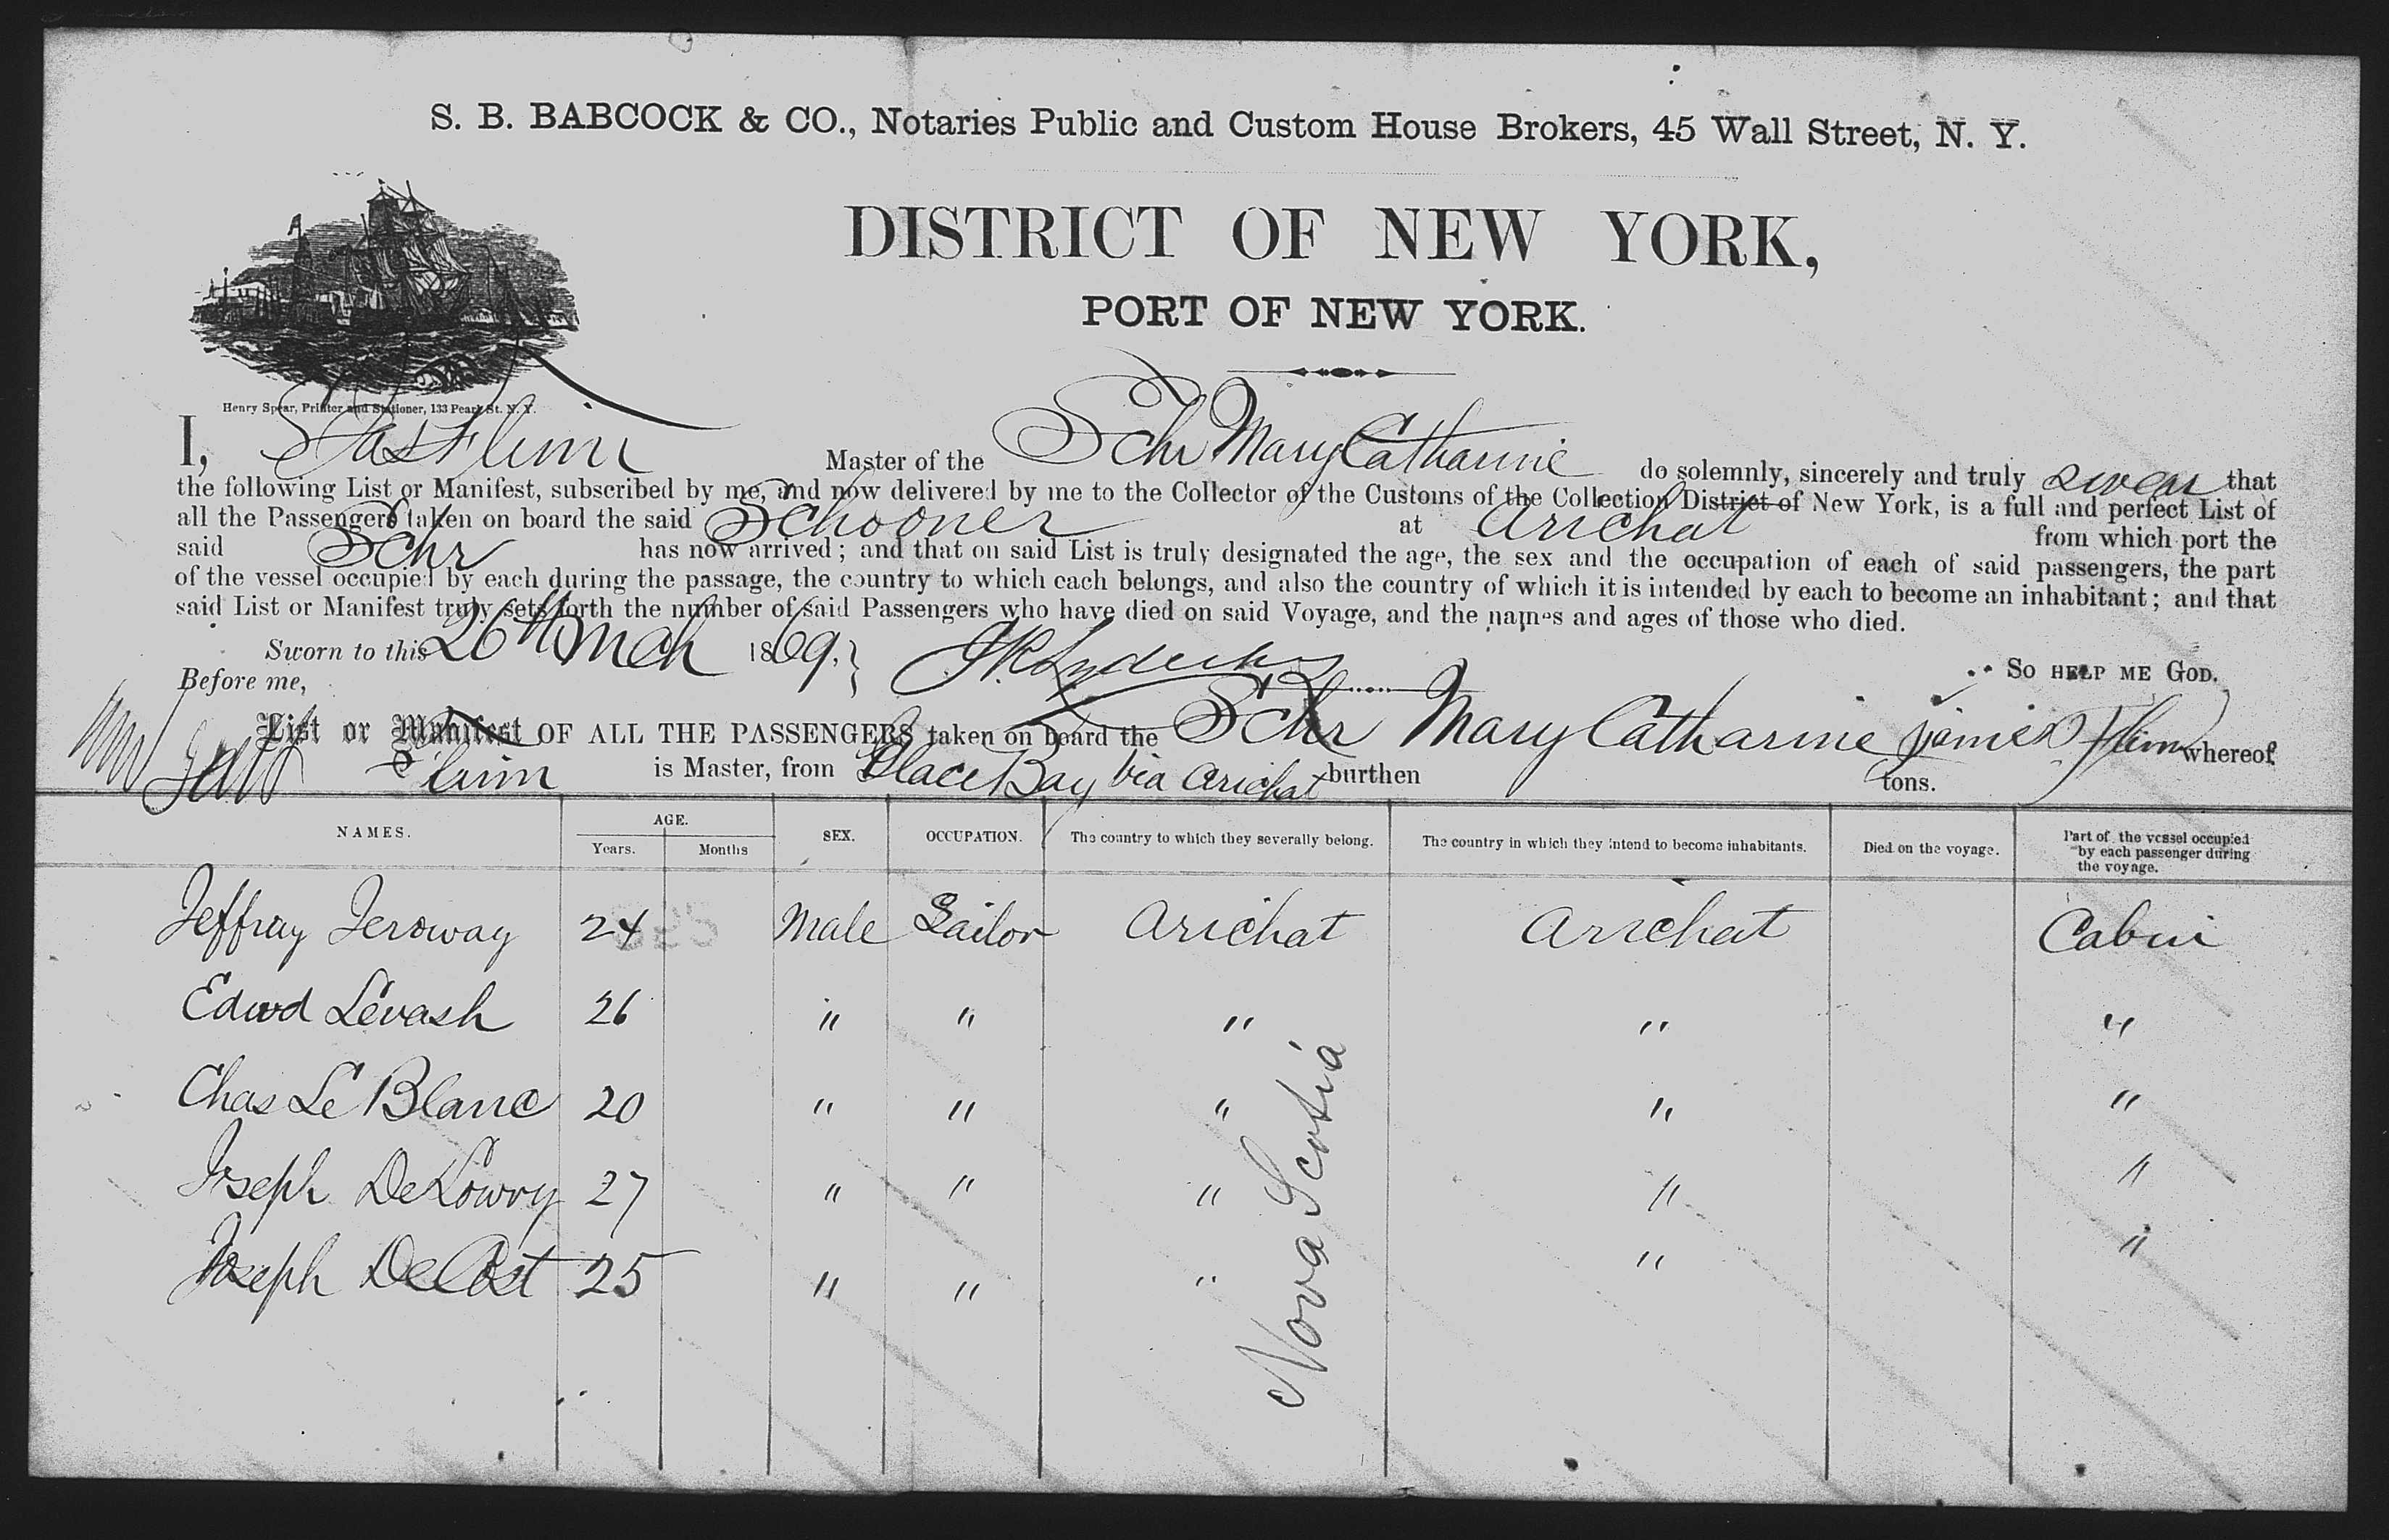 S. B. BABCOCK & CO., Notaries Public and Custom House Brokers, 45 Wall Street, N. Y.
DISTRICT OF NEW YORK,
PORT OF NEW YORK.
Henry Spear, Printer and Stationer, 133 Pearl St. N. Y.
I, Jas Flinn Master of the Schr Mary Catharine do solemnly, sincerely and truly swear that
the following List or Manifest, subscribed by me, and now delivered by me to the Collector of the Customs of the Collection District of New York, is a full and perfect List of
all the Passengers taken on board the said Schooner at Arichat from which port the
said Schr has now arrived; and that on said List is truly designated the age, the sex and the occupation of each of said passengers, the part
of the vessel occupied by each during the passage, the country to which each belongs, and also the country of which it is intended by each to become an inhabitant; and that
said List or Manifest truly sets forth the number of said Passengers who have died on said Voyage, and the names and ages of those who died.
Sworn to this 26th Mch 1869. So HELP ME GOD.
Before me,
List or Manifest OF ALL THE PASSENGERS taken on board the Schr Mary Catharine James Flinn whereof
Flinn is Master, from Glace Bay via Arichat burthen tons.
NAMES. AGE. Years. Months SEX. OCCUPATION. The country to which they severally belong. The country in which they intend to become inhabitants. Died on the voyage. Part of the vessel occupied by each passenger during the voyage.
Jeffray Jeroway 24 Male Sailor Arichat Arichat Cabin
Edwd Levash 26 " " " " "
Chas Le Blanc 20 " " " " "
Joseph DeLowry 27 " " " " "
Joseph DeCost 25 " " " " "
Nova Scotia